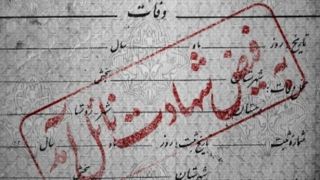 وفات
تاریخ: روز ماه سال
محل وفات: شهرستان بخش
به فیض شهادت نائل آمد
شماره ثبت تاریخ ثبت: روز ماه سال
شهرستان بخش